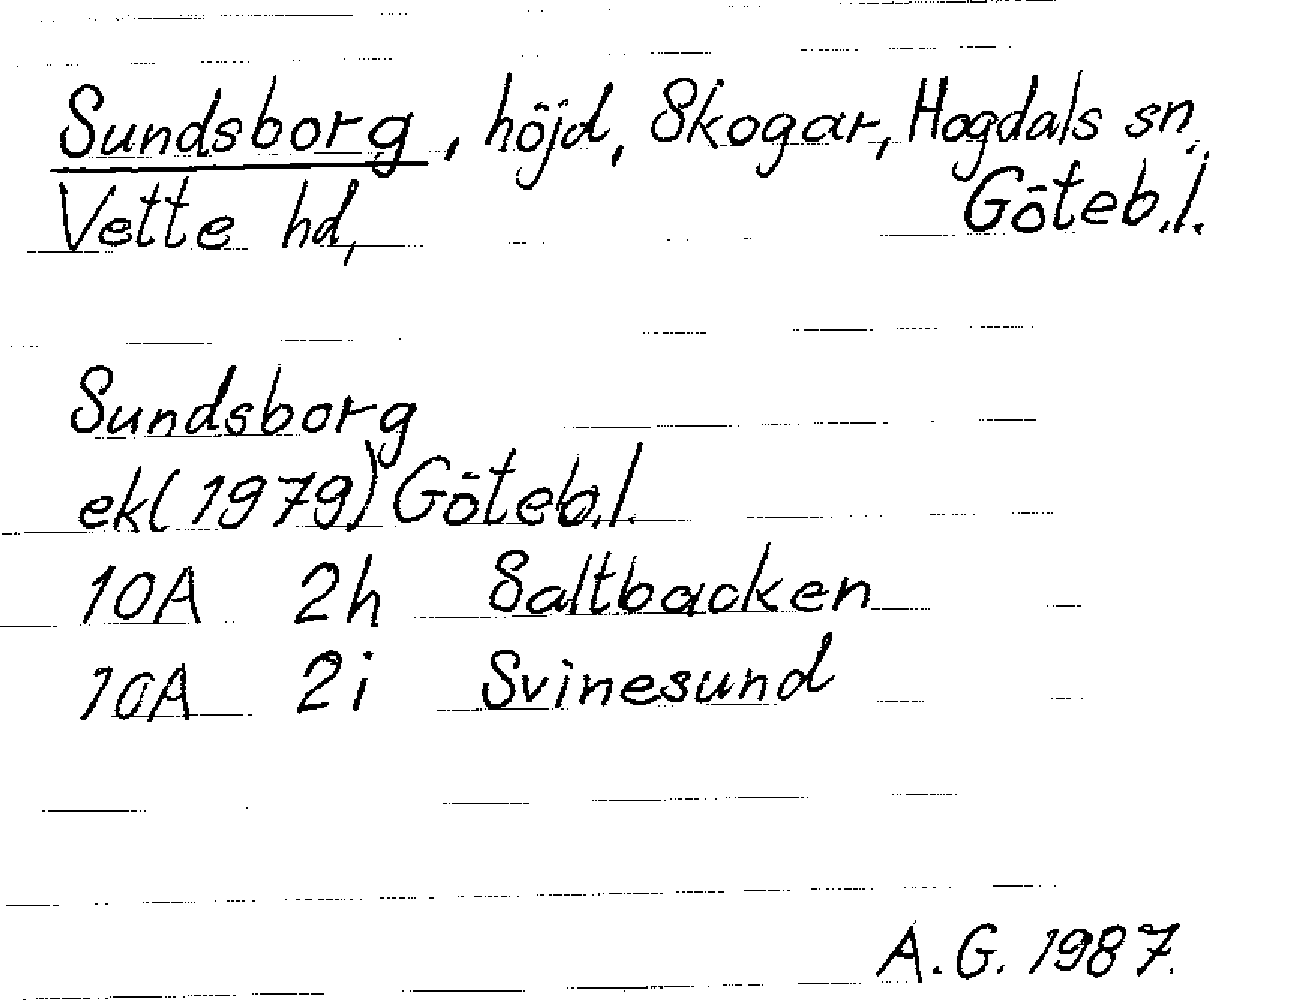 Sundsborg, höjd, Skogar, Hogdals sn,
Vette hd, Göteb.l.
Sundsborg
ek(1979) Göteb.l.
10A 2h Saltbacken
10A 2i Svinesund
A.G. 1987.